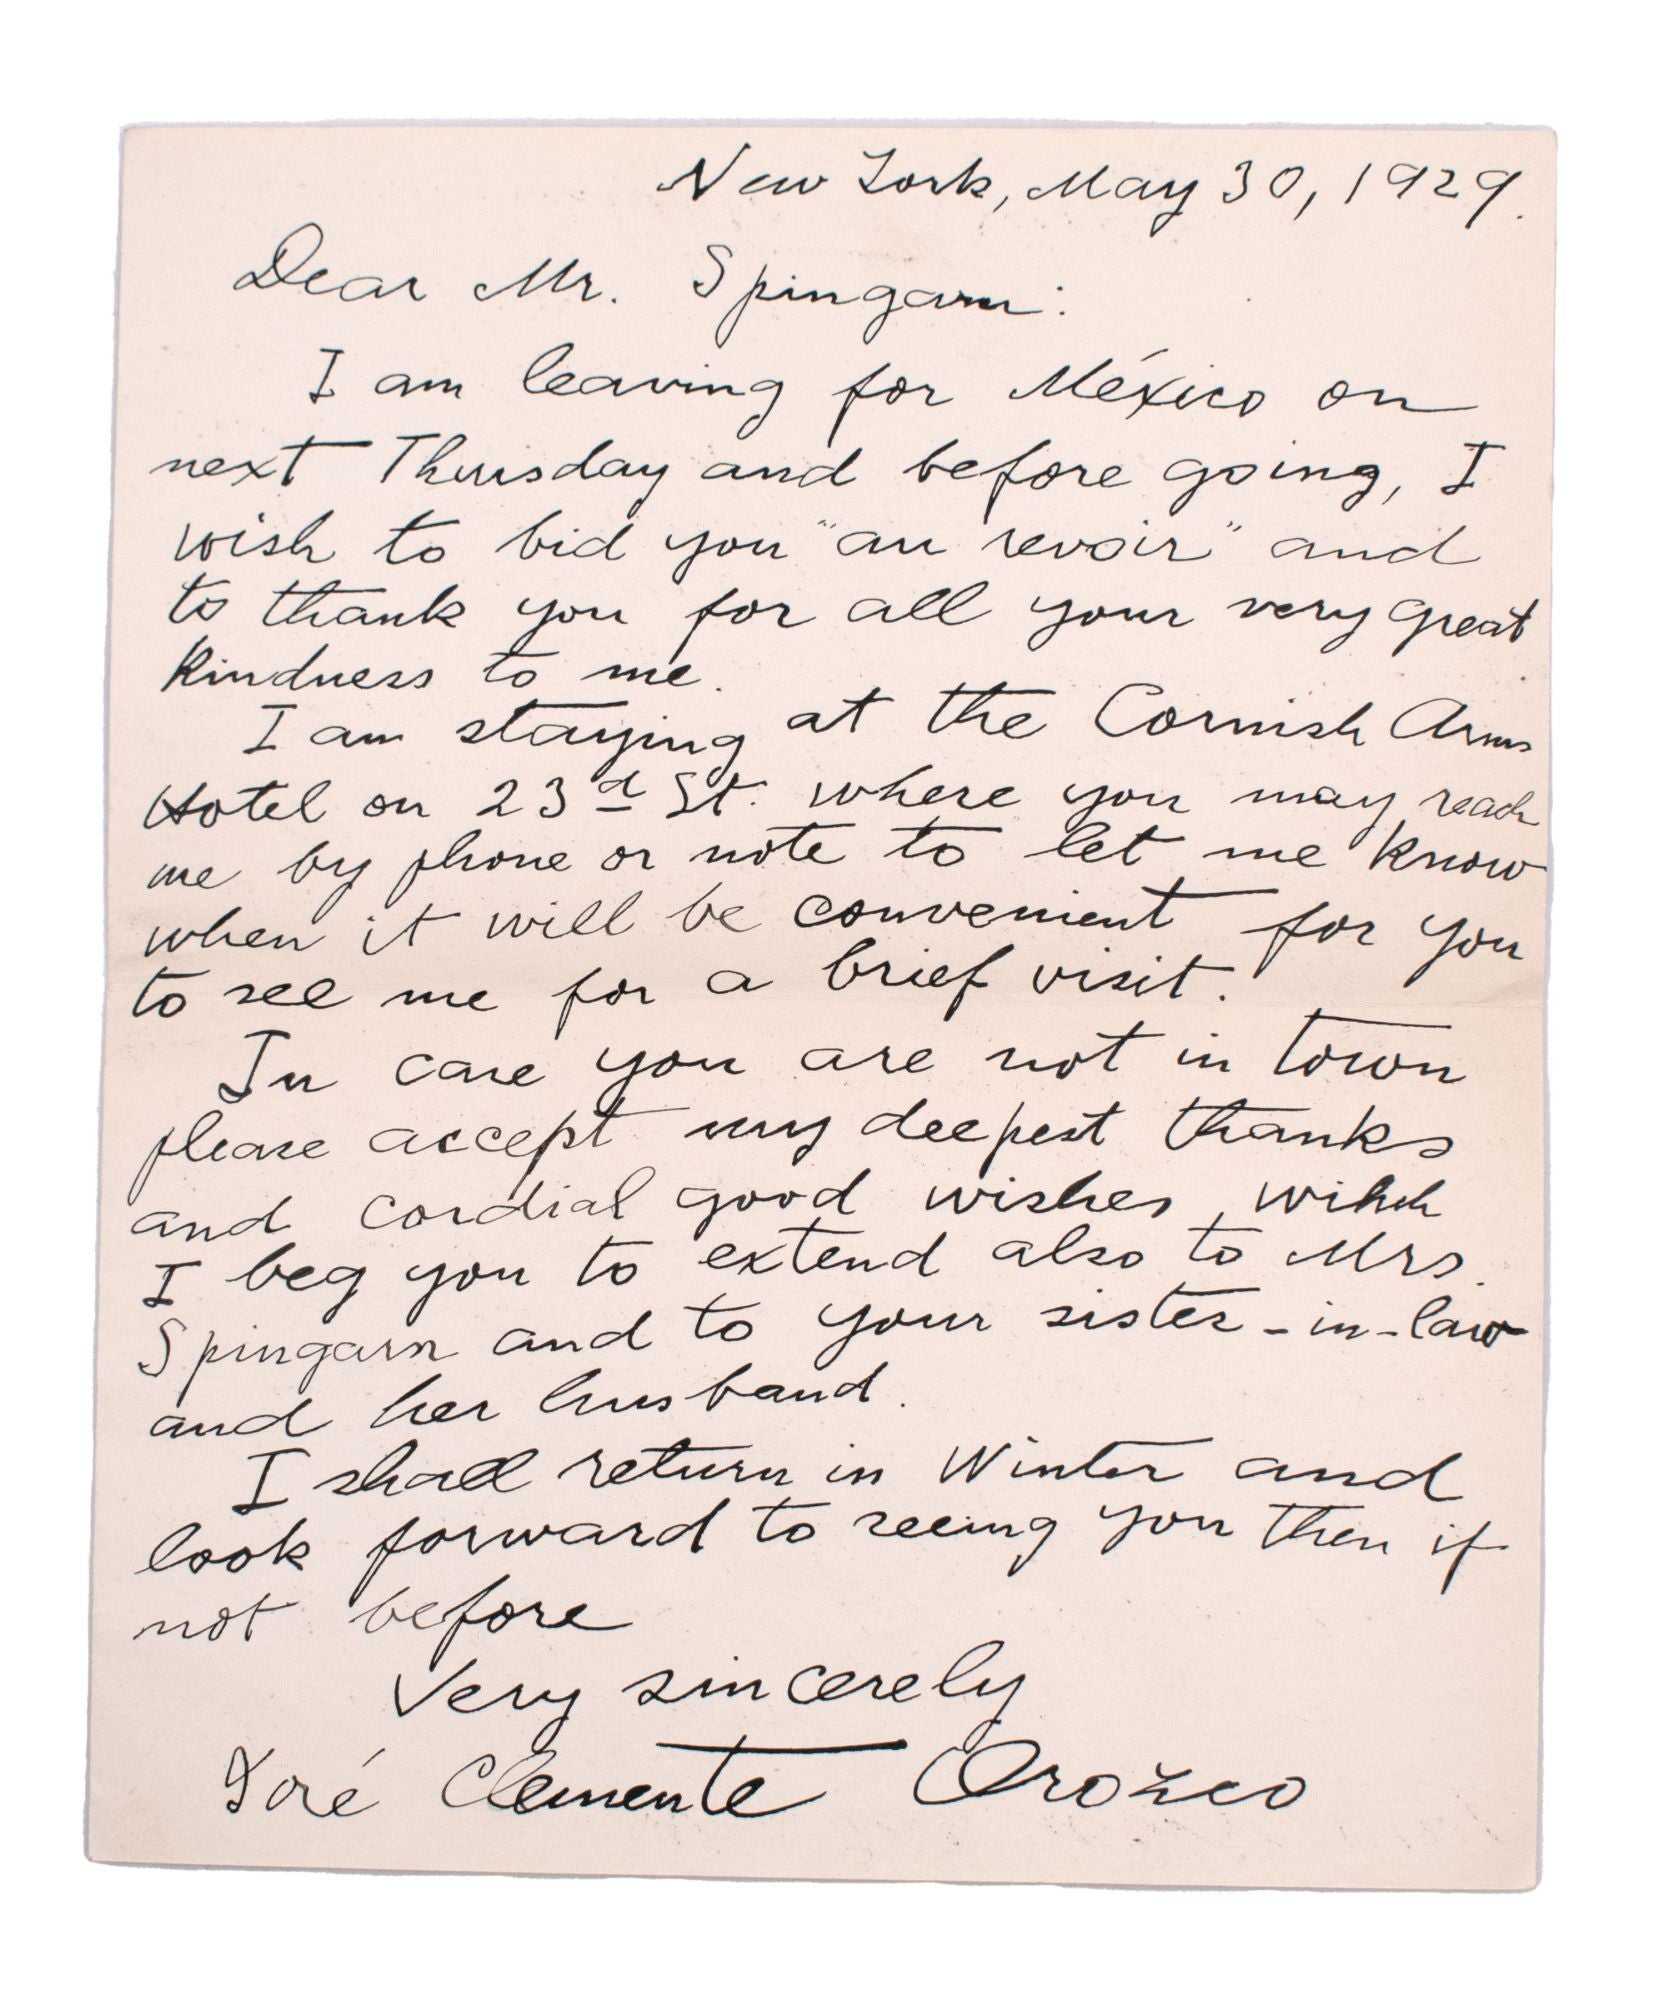 New York, May 30, 1929.
Dear Mr. Spingarn:
I am leaving for México on
next Thursday and before going, I
wish to bid you "au revoir" and
to thank you for all your very great
kindness to me.
I am staying at the Cornish Arms
Hotel on 23d St. where you may reach
me by phone or note to let me know
when it will be convenient for you
to see me for a brief visit.
In case you are not in town
please accept my deepest thanks
and cordial good wishes, which
I beg you to extend also to Mrs.
Spingarn and to your sister-in-law
and her husband.
I shall return in Winter and
look forward to seeing you then if
not before
Very sincerely
José Clemente Orozco